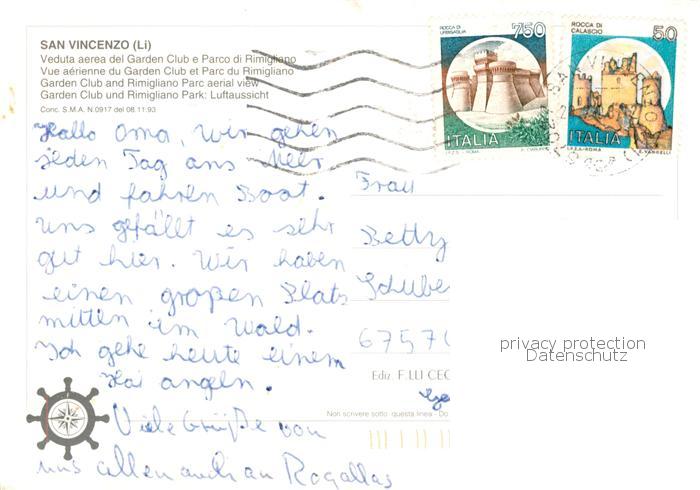 SAN VINCENZO (Li)
Veduta aerea del Garden Club e Parco di Rimigliano
Vue aérienne du Garden Club et Parc du Rimigliano
Garden Club and Rimigliano Parc aerial view
Garden Club und Rimigliano Park: Luftaussicht
Conc. S.M.A. N.0917 del 08.11.93
Hallo Oma, Wir gehen
jeden Tag ans Meer
und fahren Boot.
Uns gefällt es sehr
gut hier. Wir haben
einen großen Platz
mitten im Wald.
Ich gehe heute einem
Hai angeln.
Viele Grüße von
uns allen auch an Rogallas
ROCCA DI
URBISAGLIA
750
ITALIA
I.P.Z.S. - ROMA
ROCCA DI
CALASCIO
50
ITALIA
I.P.Z.S. - ROMA E. VANGELLI
Frau
Betty
Schube
6757
Ediz. F.LLI CEC
Non scrivere sotto questa linea - Do
privacy protection
Datenschutz